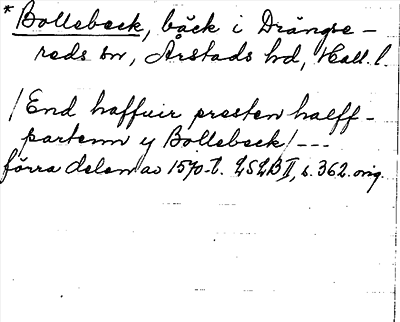 * Bollebeck, bäck i Drängse-
reds sn, Årstads hd, Hall. l.
/End haffuir presten halff-
partenn y Bollebeck/---
förra delen av 1570-t. LSLB II, s. 362. orig.